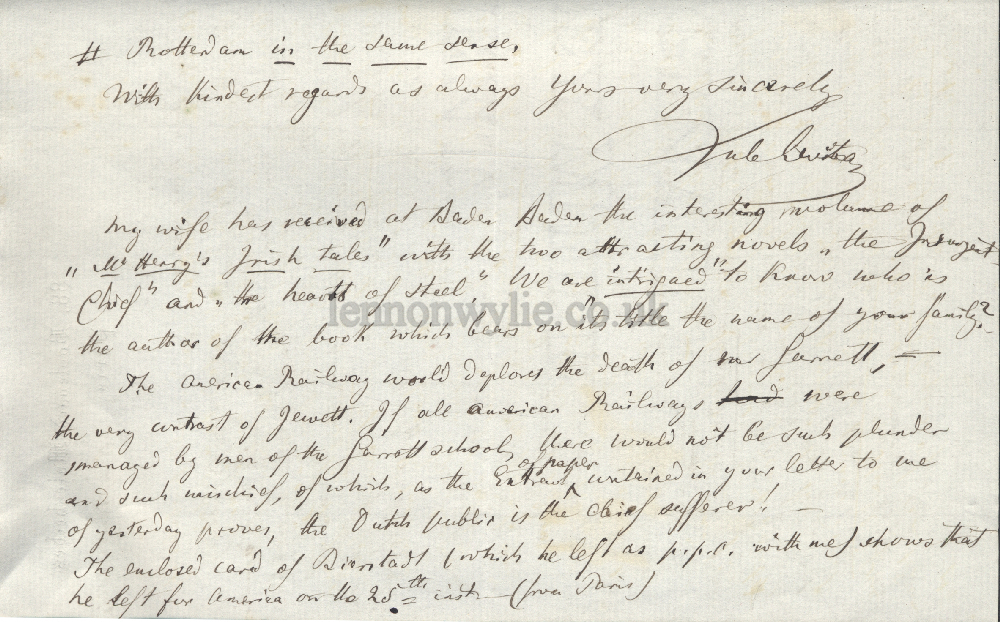 # Rotterdam in the same sense.
With kindest regards as always yours very sincerely
My wife has received at Baden Baden the interesting volume of
"McHenry's Irish tales" with the two attracting novels "the Insurgent
Chief" and "the hearts of steel." We are "intrigued" to know who is
the author of the book which bears on its title the name of your family?
lennonwylie.co.uk
The American Railway world deplores the death of Mr Garrett, —
the very contrast of Jewett. If all American Railways had were
managed by men of the Garrett school, there would not be such plunder
and such mischief, of which, as the Extract of paper contained in your letter to me
of yesterday proves, the Dutch public is the chief sufferer! —
The enclosed card of Bierstadt (which he left as p.p.c. with me) shows that
he left for America on the 25th inst — (from Paris)